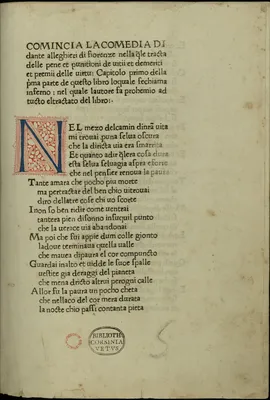 COMINCIA LACOMEDIA DI
dante alleghieri di fiorenze nella q̄le tracta
delle pene et punitioni de uitii et demeriti
et premii delle uirtu: Capitolo primo della
p̄ma parte de questo libro loquale sechiama
inferno: nel quale lautore fa prohemio ad
tucto eltractato del libro:
NEL mezo delcamin dinrā uita
mi trouai puna selua oscura
che la diricta uia era smarrita
Et quanto adir q̄lera cosa dura
esta selua seluagia aspra eforte
che nel pensier renoua la paura
Tante amara che pocho piu morte
ma pertractar del ben chio uitrouai
diro dellatre cose chi uo scorte
I non so ben ridir come uentrai
tantera pien disonno insuquil punto
che la uerace uia abandonai
Ma poi che fui appie dum colle gionto
ladoue terminaua quella ualle
che mauea dipaura el cor compuncto
Guardai inalto et uidde le suoe spalle
uestite gia deraggi del pianeta
che mena dricto altrui perogni calle
Allor fu la paura un pocho cheta
che nellaco del cor mera durata
la nocte chio passi contanta pieta
BIBLIOTH
CORSINIA
VETVS